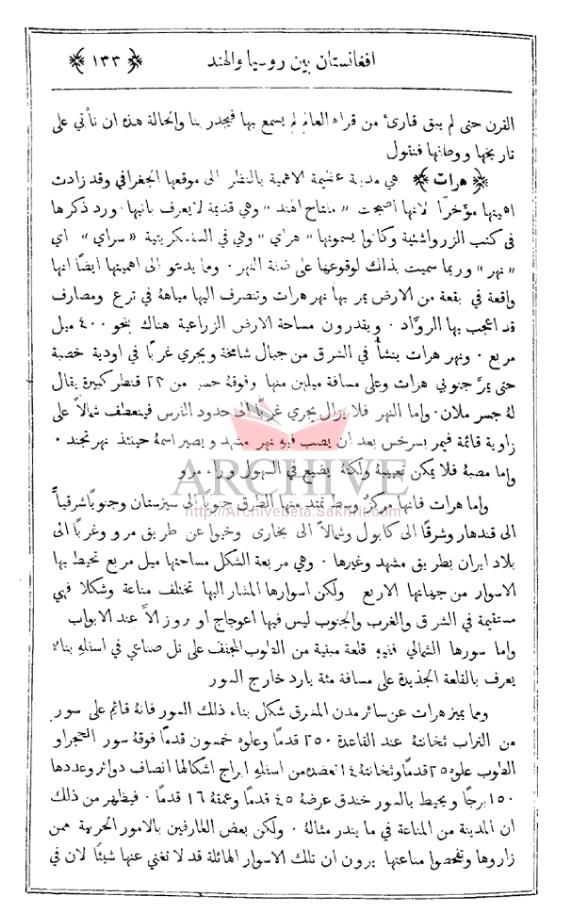 افغانستان بين روسيا والهند
﴿ ١٣٣ ﴾
القرن حتى لم يبق قارئ من قراء العالم لم يسمع بها فيجدر بنا والحالة هذه ان نأتي على
تاريخها ووصفها فنقول
﴿ هرات ﴾ هي مدينة عظيمة الاهمية بالنظر الى موقعها الجغرافي وقد زادت
اهميتها مؤخرًا لانها اصبحت «مفتاح الهند» وهي قديمة لا يعرف بانيها. ورد ذكرها
في كتب الزرواشتية وكانوا يسمونها «هراي» وهي في السنسكريتية «سراي» اي
«نهر» وربما سميت بذلك لوقوعها على ضفة النهر. ومما يدعو الى اهميتها ايضًا انها
واقعة في بقعة من الارض يمر بها نهر هرات وتنصرف اليها مياهه في ترع ومصارف
قد اعجب بها الروَّاد. ويقدرون مساحة الارض الزراعية هناك بنحو ٤٠٠ ميل
مربع. ونهر هرات ينشأ في الشرق من جبال شامخة ويجري غربًا في اودية خصبة
حتى يمرَّ جنوبي هرات وعلى مسافة ميلين منها وفوقه جسر من ٢٢ قنطر كبيرة يقال
له جسر ملان. واما النهر فلا يزال يجري غربًا الى حدود الفرس فينعطف شمالاً على
زاوية قائمة فيمر بسرخس بعد ان يصب فيه نهر مشهد ويصير اسمه حينئذ نهر تجند.
واما مصبه فلا يمكن تعيينه ولكنه يضيع في السهول وراء مرو
واما هرات فانها مركز متوسط تمتد منها الطرق جنوبًا الى سيزستان وجنوبًا شرقيًّا
الى قندهار وشرقًا الى كابول وشمالاً الى بخارى وخيوا عن طريق مرو وغربًا الى
بلاد ايران بطريق مشهد وغيرها. وهي مربعة الشكل مساحتها ميل مربع تحيط بها
الاسوار من جهاتها الاربع ولكن اسوارها المشار اليها تختلف مناعة وشكلا فهي
مستقيمة في الشرق والغرب والجنوب ليس فيها اعوجاج او بروز الاَّ عند الابواب
واما سورها الشمالي ففيه قلعة مبنية من الطوب المجفف على تل صناعي في اسفله بناء
يعرف بالقلعة الجديدة على مسافة مئة يارد خارج السور
ومما يميز هرات عن سائر مدن المشرق شكل بناء ذلك السور فانه قائم على سور
من التراب ثخانته عند القاعدة ٢٥٠ قدمًا وعلوه خمسون قدمًا فوقه سور الحجر او
الطوب علوه ٢٥ قدمًا وثخانته ١٤ تعضده من اسفله ابراج اشكالها انصاف دوائر وعددها
١٥٠ برجًا ويحيط بالسور خندق عرضه ٤٥ قدمًا وعمقه ١٦ قدمًا. فيظهر من ذلك
ان المدينة من المناعة في ما يندر مثاله. ولكن بعض العارفين بالامور الحربية ممن
زاروها وتفحصوا مناعتها يرون ان تلك الاسوار الهائلة قد لا تغني عنها شيئًا لان في
ARCHIVE
http://Archivebeta.Sakhrit.com